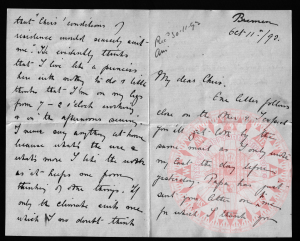 that "Chris'" conditions of
residence would scarcely suit
me". He evidently thinks
that I live like a princess
here little
thinks that I'm on my legs
from 7 - 6 o'clock working
& in the afternoons sewing.
I never say anything at home
because what's the use &
what's more I like the work
as it helps me from
thinking of other things. If
only the climate
which I no doubt think
Oct 11th/90.
My dear Chris.
One letter follows
close on the other & I expect
you'll get both by the
same mail as I only
my last the day before
yesterday. Papa has just
sent your letter on to me
for which I thank you